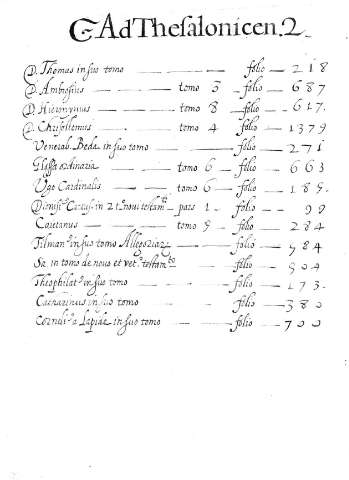 G. Ad Thesalonicen. 2
D. Thomas in suo tomo — folio — 218
D. Ambrosius — tomo 3 — folio — 687
D. Hieronymus — tomo 8 — folio — 617.
D. Chrisostomus — tomo 4 — folio — 1379
Venerab. Beda in suo tomo — folio — 271
Glossa ordinaria — tomo 6 — folio — 663
Ugo Cardinalis — tomo 6 — folio — 189.
Dionisi⁹ Cartus. in 2 t. noui testamto — pars 1 — folio — 99
Caietanus — tomo 5 — folio — 284
Tilman⁹ in suo tomo Allegoriarum — folio — 784
Sa in tomo de nouo et vet. testamto — folio — 504
Theophilat⁹ in suo tomo — folio — 173.
Catharinus in suo tomo — folio — 380
Corneli⁹ a Lapide in suo tomo — folio — 700